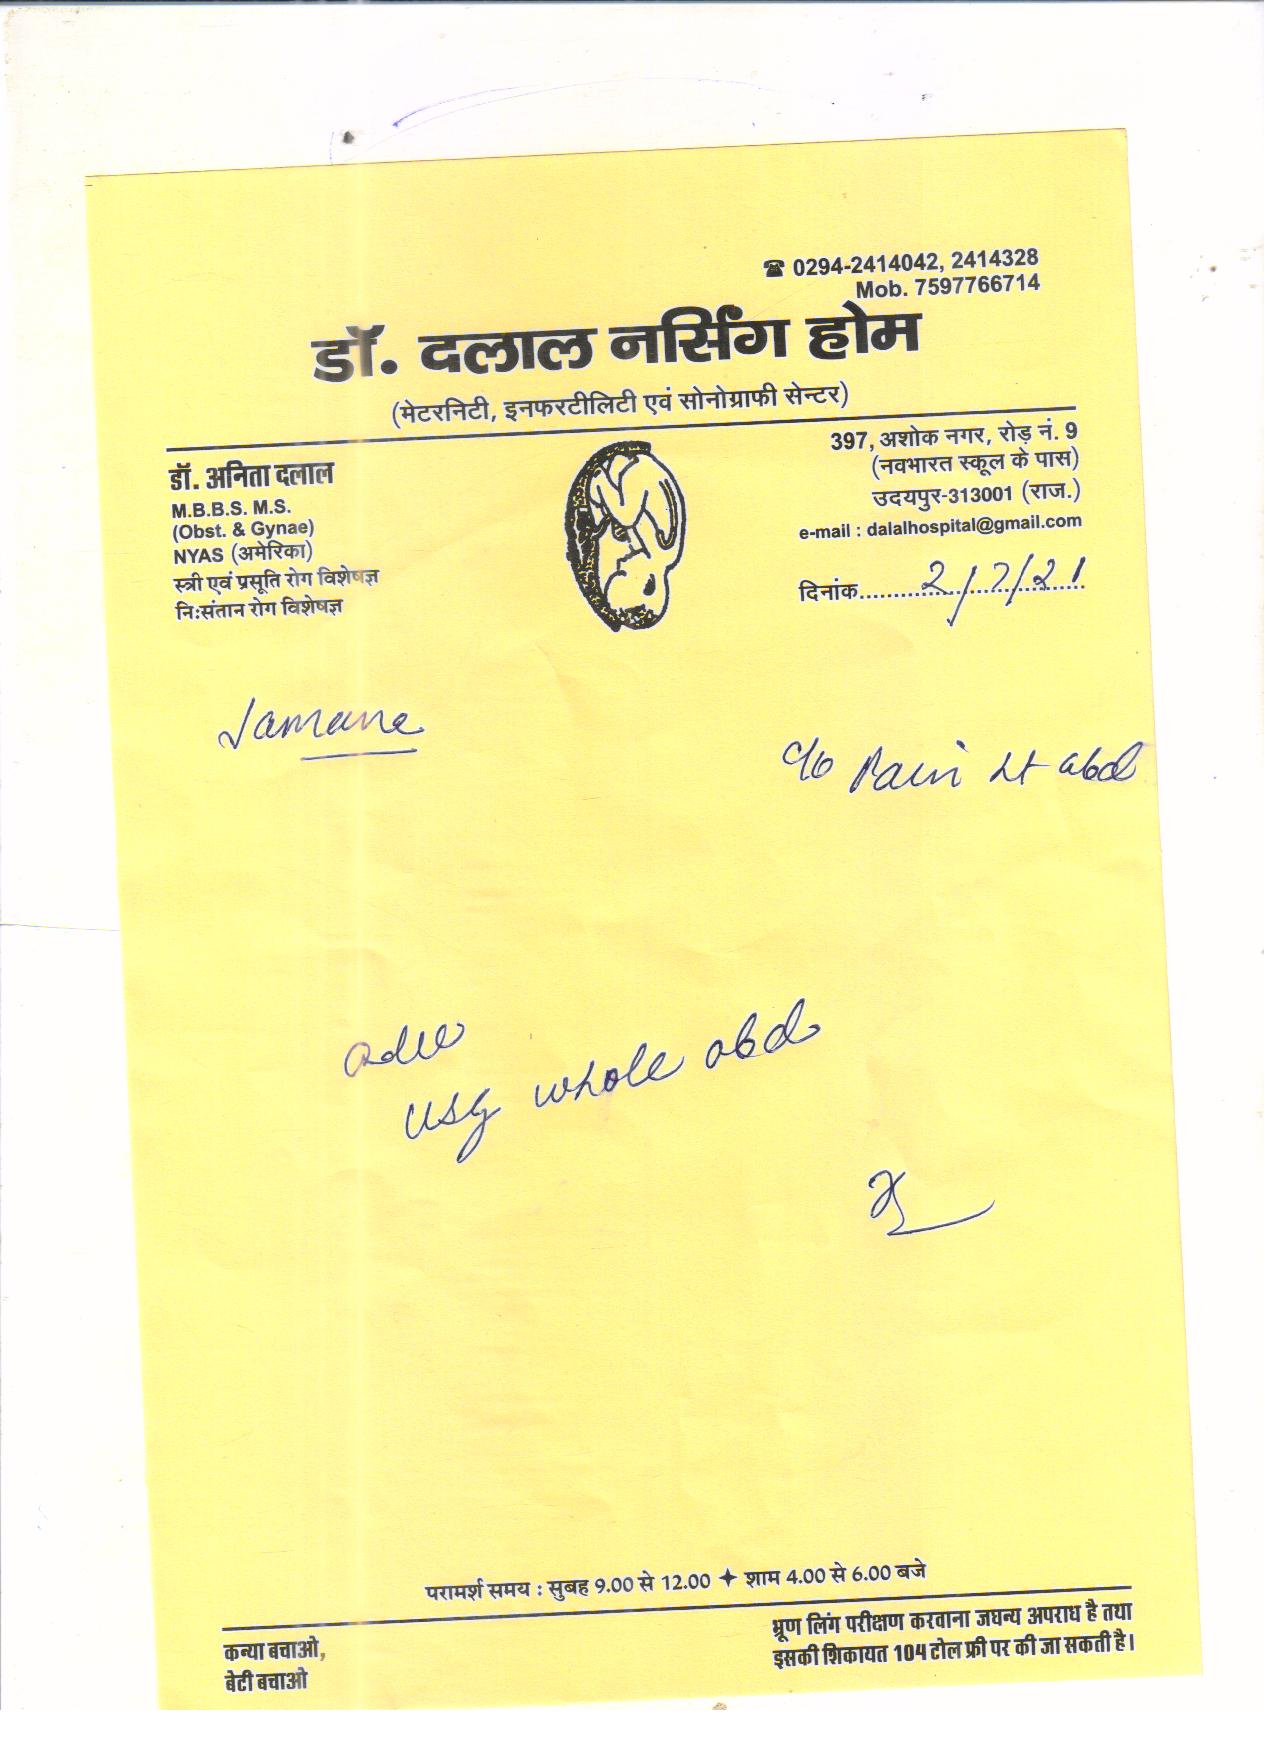 ☎ 0294-2414042, 2414328
Mob. 7597766714
डॉ. दलाल नर्सिंग होम
(मेटरनिटी, इनफरटीलिटी एवं सोनोग्राफी सेन्टर)
डॉ. अनिता दलाल
M.B.B.S. M.S.
(Obst. & Gynae)
NYAS (अमेरिका)
स्त्री एवं प्रसूति रोग विशेषज्ञ
निःसंतान रोग विशेषज्ञ
397, अशोक नगर, रोड़ नं. 9
(नवभारत स्कूल के पास)
उदयपुर-313001 (राज.)
e-mail : dalalhospital@gmail.com
दिनांक 2/7/21
c/o Pain Lt abd
adv
USG whole abd
परामर्श समय : सुबह 9.00 से 12.00 ✦ शाम 4.00 से 6.00 बजे
कन्या बचाओ,
बेटी बचाओ
भ्रूण लिंग परीक्षण करवाना जघन्य अपराध है तथा
इसकी शिकायत 104 टोल फ्री पर की जा सकती है।